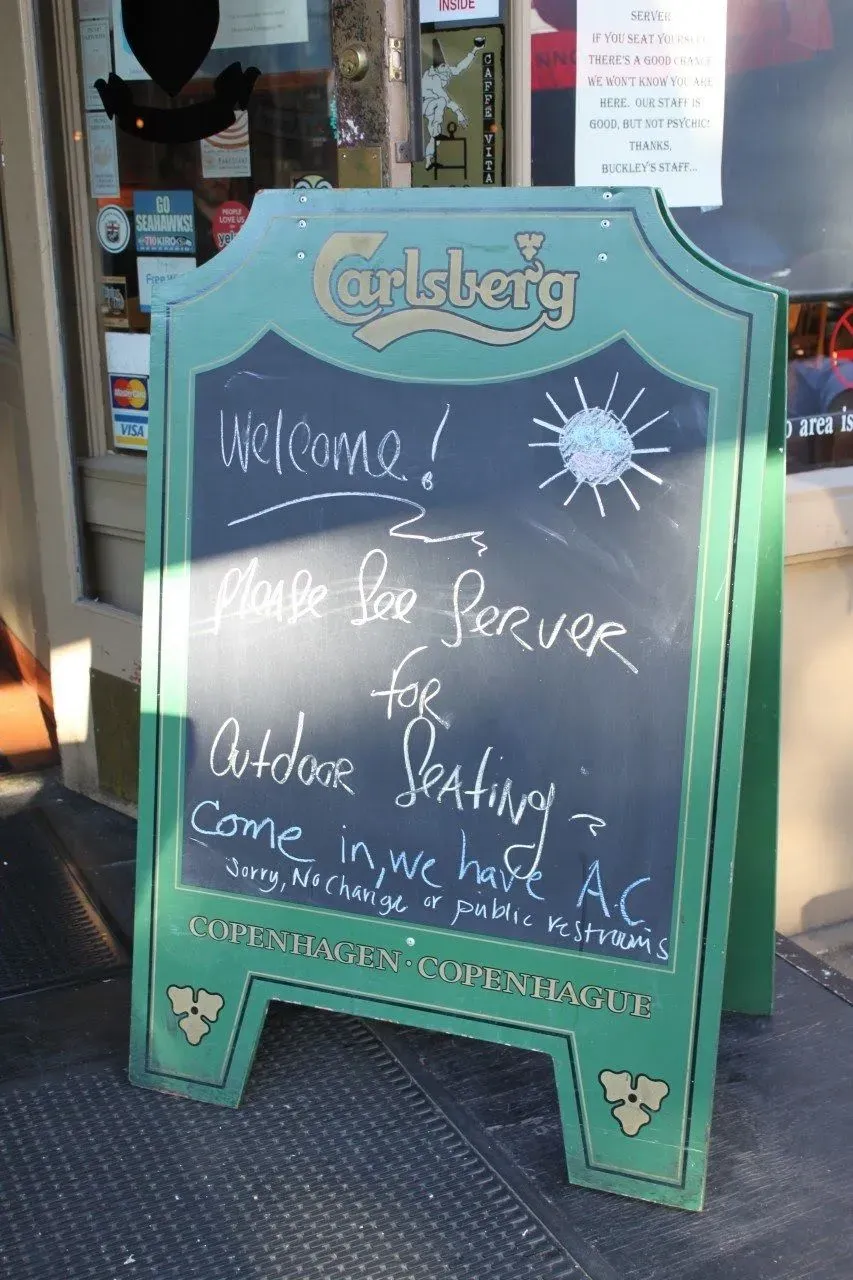 INSIDE
CAFFE VITA
SERVER
IF YOU SEAT YOURSELF
THERE'S A GOOD CHANCE
WE WON'T KNOW YOU ARE
HERE. OUR STAFF IS
GOOD, BUT NOT PSYCHIC!
THANKS,
BUCKLEY'S STAFF...
GO
SEAHAWKS!
710 KIRO
PEOPLE
LOVE US
yelp
Free
MasterCard
VISA
area is
Carlsberg
Welcome!
Please See Server
for
Outdoor Seating
Come in, we have A.C
Sorry, No Change or public restrooms
COPENHAGEN · COPENHAGUE